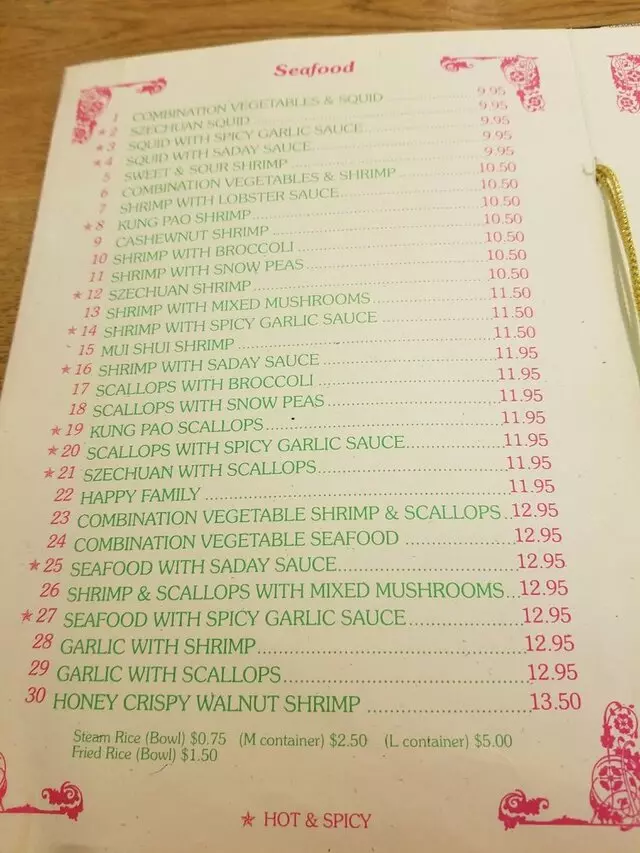 Seafood
1 COMBINATION VEGETABLES & SQUID ........ 9.95
★ 2 SZECHUAN SQUID ........ 9.95
★ 3 SQUID WITH SPICY GARLIC SAUCE ........ 9.95
★ 4 SQUID WITH SADAY SAUCE ........ 9.95
5 SWEET & SOUR SHRIMP ........ 9.95
6 COMBINATION VEGETABLES & SHRIMP ........ 10.50
7 SHRIMP WITH LOBSTER SAUCE ........ 10.50
★ 8 KUNG PAO SHRIMP ........ 10.50
9 CASHEWNUT SHRIMP ........ 10.50
10 SHRIMP WITH BROCCOLI ........ 10.50
11 SHRIMP WITH SNOW PEAS ........ 10.50
★ 12 SZECHUAN SHRIMP ........ 10.50
13 SHRIMP WITH MIXED MUSHROOMS ........ 11.50
★ 14 SHRIMP WITH SPICY GARLIC SAUCE ........ 11.50
15 MUI SHUI SHRIMP ........ 11.50
★ 16 SHRIMP WITH SADAY SAUCE ........ 11.95
17 SCALLOPS WITH BROCCOLI ........ 11.95
18 SCALLOPS WITH SNOW PEAS ........ 11.95
★ 19 KUNG PAO SCALLOPS ........ 11.95
★ 20 SCALLOPS WITH SPICY GARLIC SAUCE ........ 11.95
★ 21 SZECHUAN WITH SCALLOPS ........ 11.95
22 HAPPY FAMILY ........ 11.95
23 COMBINATION VEGETABLE SHRIMP & SCALLOPS .. 12.95
24 COMBINATION VEGETABLE SEAFOOD ........ 12.95
★ 25 SEAFOOD WITH SADAY SAUCE ........ 12.95
26 SHRIMP & SCALLOPS WITH MIXED MUSHROOMS ... 12.95
★ 27 SEAFOOD WITH SPICY GARLIC SAUCE ........ 12.95
28 GARLIC WITH SHRIMP ........ 12.95
29 GARLIC WITH SCALLOPS ........ 12.95
30 HONEY CRISPY WALNUT SHRIMP ........ 13.50
Steam Rice (Bowl) $0.75 (M container) $2.50 (L container) $5.00
Fried Rice (Bowl) $1.50
★ HOT & SPICY